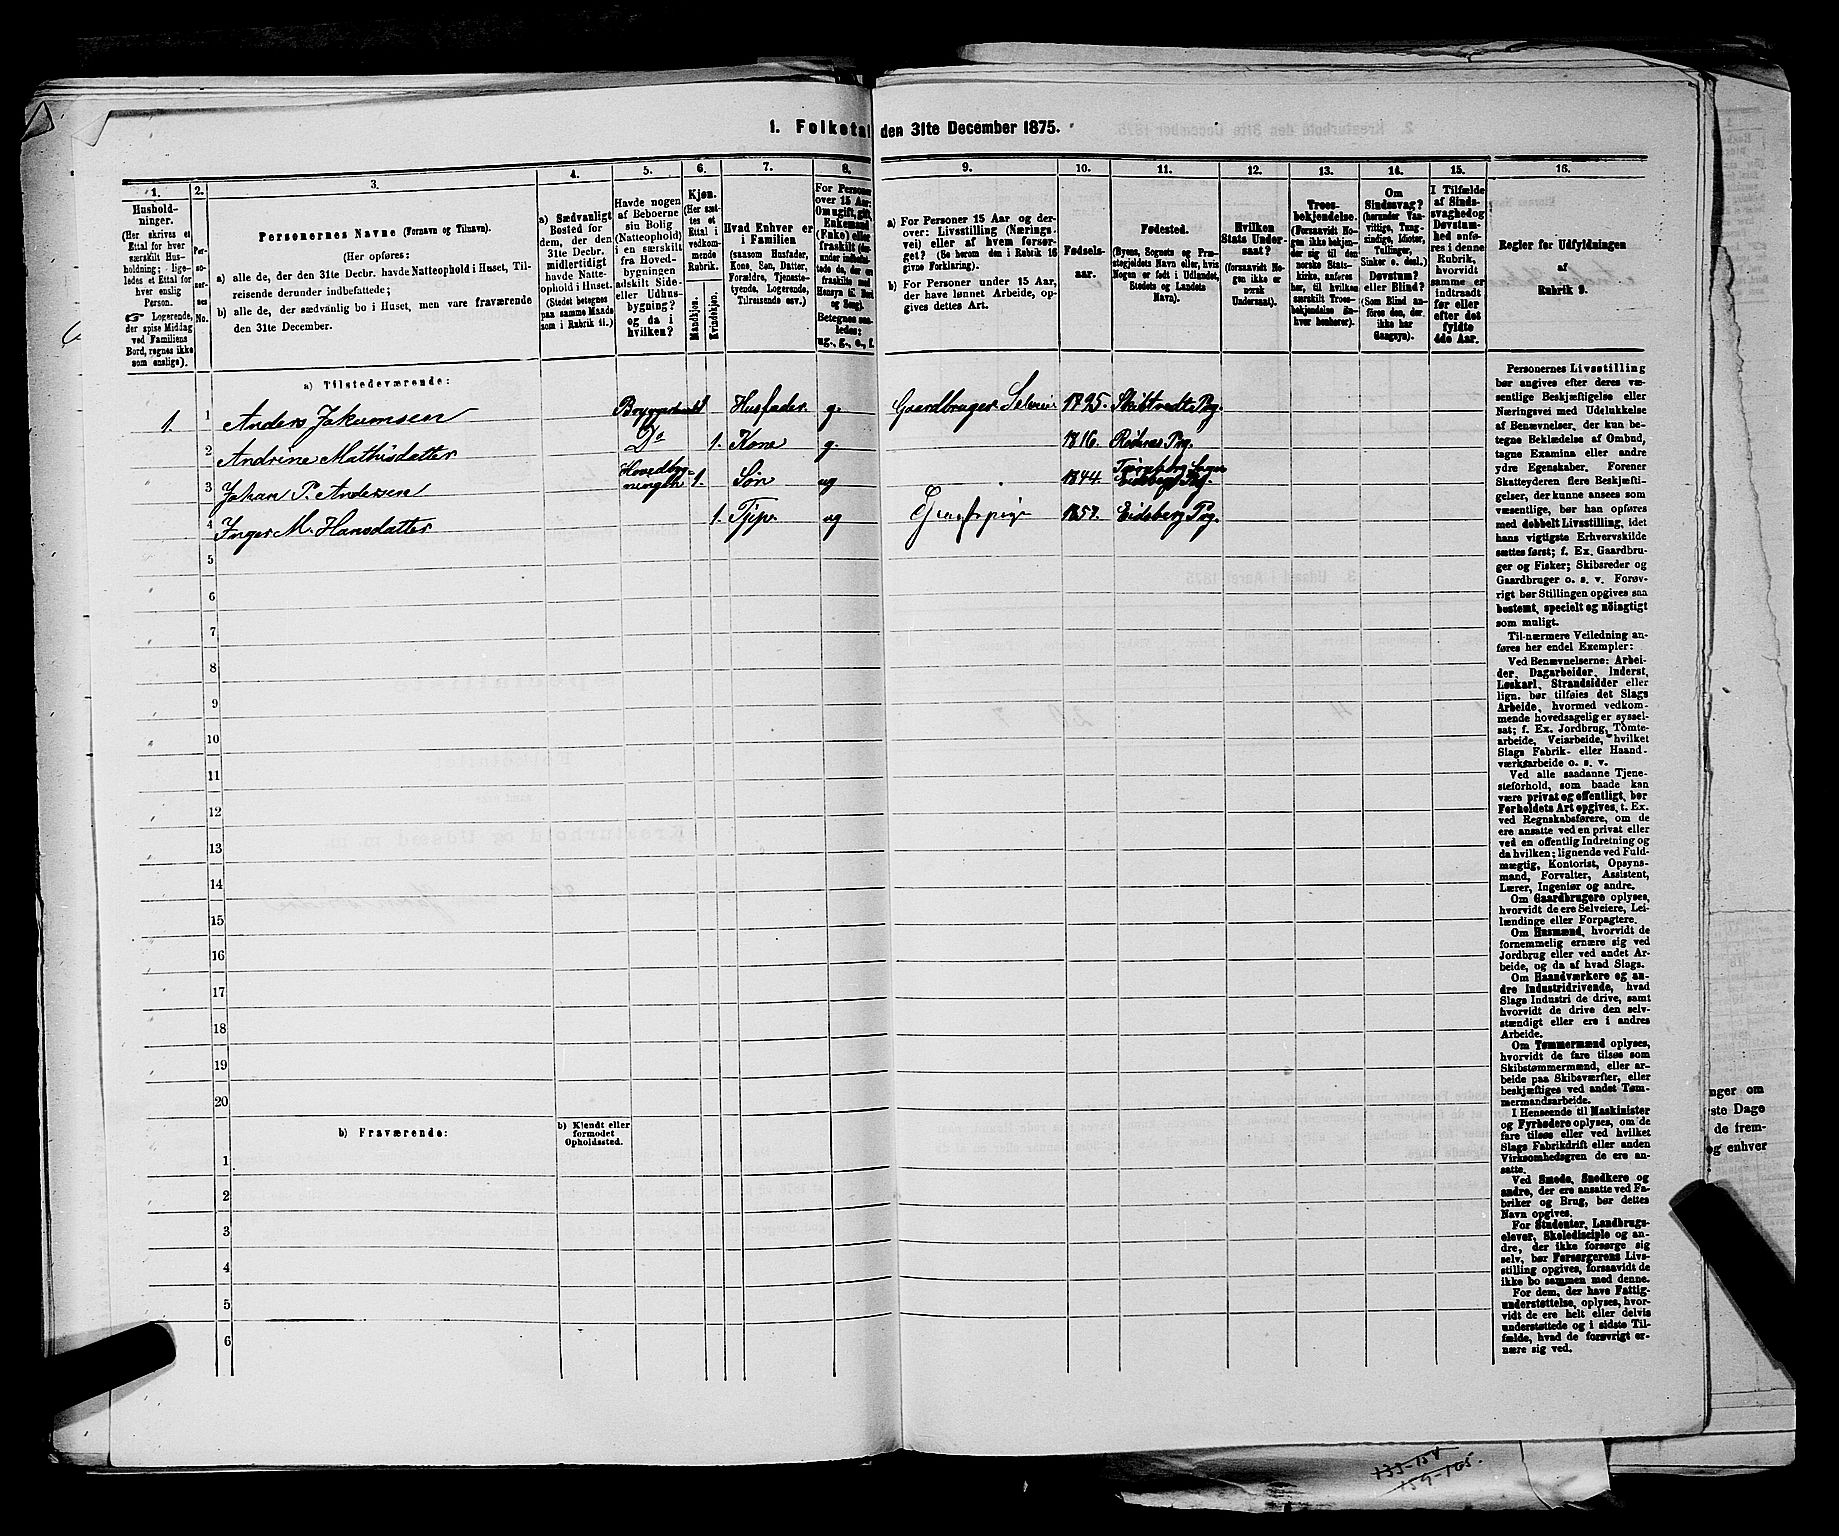 1. Folketal den 31te December 1875.
1.
Husholdninger.
(Her skrives et
Ettal for hver
særskilt Husholdning;
ligeledes et Ettal for
hver enslig
Person.
☞ Logerende,
der spise Middag
ved Familiens
Bord, regnes ikke
som enslige).
2.
Personernes
No.
3.
Personernes Navne (Fornavn og Tilnavn).
(Her opføres:
a) alle de, der den 31te Decbr. havde Natteophold i Huset, Tilreisende
derunder indbefattede;
b) alle de, der sædvanlig bo i Huset, men vare fraværende
den 31te December.
4.
a) Sædvanligt
Bosted for
dem, der den
31te Decbr.
midlertidigt
havde Natteophold
i Huset.
(Stedet betegnes
paa samme Maade
som i Rubrik 11.)
5.
Havde nogen
af Beboerne
sin Bolig
(Natteophold)
i en særskilt
fra Hovedbygningen
adskilt Side- eller
Udhusbygning?
og da i
hvilken?
6.
Kjøn.
(Her sættes
et
Ettal i
vedkommende
Rubrik.
Mandkjøn.
Kvindekjøn.
7.
Hvad Enhver er
i Familien
(saasom Husfader,
Kone, Søn, Datter,
Forældre, Tjenestetyende,
Logerende,
Tilreisende osv.)
8.
For Personer
over 15 Aar:
Om ugift, gift,
Enkemand
(Enke) eller
fraskilt
Betegnes saaledes:
ug., g., e., f.
9.
a) For Personer 15 Aar og derover:
Livsstilling (Næringsvei)
eller af hvem forsørget?
(Se herom den i Rubrik 16
givne Forklaring).
b) For Personer under 15 Aar,
der have lønnet Arbeide, opgives
dettes Art.
10.
Fødselsaar.
11.
Fødested.
(Byens, Sognets og Præstegjeldets
Navn eller, hvis
Nogen er født i Udlandet,
Stedets og Landets
Navn).
12.
Hvilken
Stats Undersaat?
(forsaavidt Nogen
ikke er
norsk
Undersaat).
13.
Troesbekjendelse.
(Forsaavidt Nogen
ikke bekjender
sig til den
norske Statskirke,
anføres
her, til hvilken
særskilt Troesbekjendelse
Enhver
henhører).
14.
Om
Sindssvag?
(herunder Vanvittige,
Tungsindige,
Idioter,
Tullinger,
Sinker o. desl.)
Døvstum?
eller Blind?
(Som Blind anføres
den, der
ikke har
Gangsyn).
15.
I Tilfælde
af Sindssvaghed
og
Døvstumhed
anføres
i denne
Rubrik,
hvorvidt
samme er
indtraadt
før eller
efter det
fyldte
4de Aar.
16.
Regler for Udfyldningen
af
Rubrik 9.
a) Tilstedeværende:
1. 1 Anders Jakumsen Bryggerhuset 1 Husfader g. Gaardbruger Selveier 1795. Skibtvedt Pg.
2 Andrine Mathisdatter Do 1. Kone g 1816. Pg.
3 Johan P. Andersen Hovedbygningen 1. Søn ug 1844. Eidsberg Pg.
4 Inger M. Hansdatter 1. Tjp. ug Tjenestepige 1857. Eidsberg Pg.
5
6
7
8
9
10
11
12
13
14
15
16
17
18
19
20
b) Fraværende:
b) Kjendt eller
formodet
Opholdssted.
1
2
3
4
5
6
Personernes Livsstilling
bør angives efter deres væsentlige
Beskjæftigelse eller
Næringsvei med Udelukkelse
af Benævnelser, der kun betegne
Beklædelse af Ombud,
tagne Examina eller andre
ydre Egenskaber. Forener
Skatteyderen flere Beskjæftigelser,
der kunne ansees som
væsentlige, bør han opføres
med dobbelt Livsstilling, idet
hans vigtigste Erhvervskilde
sættes først; f. Ex. Gaardbruger
og Fisker; Skibsreder og
Gaardbruger o. s. v. Forøvrigt
bør Stillingen opgives saa
bestemt, specielt og nöiagtigt
som muligt.
Til nærmere Veiledning anføres
her endel Exempler:
Ved Benævnelserne: Arbeider,
Dagarbeider, Inderst,
Løskarl, Strandsidder eller
lign. bør tilføies det Slags
Arbeide, hvormed vedkommende
hovedsagelig er sysselsat;
f. Ex. Jordbrug, Tomtearbeide,
Veiarbeide, hvilket
Slags Fabrik- eller Haandværksarbeide
o. s. v.
Ved alle saadanne Tjenesteforhold,
som baade kan
være privat og offentligt, bør
Forholdets Art opgives, t. Ex.
ved Regnskabsførere, om de
ere ansatte ved en privat eller
ved en offentlig Indretning og
da hvilken; lignende ved Fuldmægtig,
Kontorist, Opsynsmand,
Forvalter, Assistent,
Lærer, Ingeniør og andre.
Om Gaardbrugere oplyses,
hvorvidt de ere Selveiere, Leilændinge
eller Forpagtere.
Om Husmænd, hvorvidt de
fornemmelig ernære sig ved
Jordbrug eller ved andet Arbeide,
og da af hvad Slags.
Om Haandværkere og andre
Industridrivende, hvad
Slags Industri de drive, samt
hvorvidt de drive den selvstændigt
eller ere i andres
Arbeide.
Om Tømmermænd oplyses,
hvorvidt de fare tilsøs som
Skibstømmermænd, eller arbeide
paa Skibsværfter, eller
beskjæftiges ved andet Tømmermandsarbeide.
I Henseende til Maskinister
og Fyrbødere oplyses, om de
fare tilsøs eller ved hvilket
Slags Fabrikdrift eller anden
Virksomhedsgren de ere ansatte.
Ved Smede, Snedkere og
andre, der ere ansatte ved Fabriker
og Brug, bør dettes
Navn opgives.
For Studenter, Landbrugselever,
Skoledisciple og andre,
der ikke forsørge sig
selv, bør Forsørgerens Livsstilling
opgives, forsaavidt de
ikke bo sammen med denne.
For dem, der have Fattigunderstøttelse,
oplyses, hvorvidt
de ere helt eller delvis
understøttede og i sidste Tilfælde,
hvad de forøvrigt ernære
sig ved.
nger om
ste Dage
de frem-
og enhver
135-154
159-165.